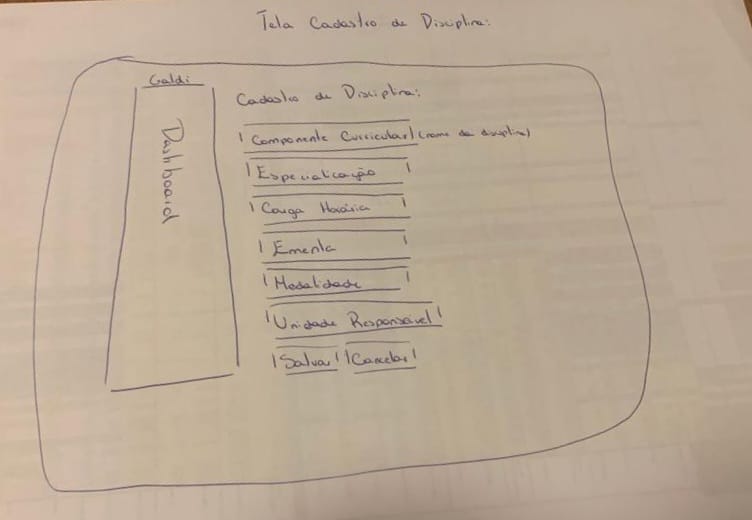 Tela Cadastro de Disciplina:
Galdi
Dashboard
Cadastro de Disciplina:
Componente Curricular (nome da disciplina)
Especialização
Carga Horária
Ementa
Modalidade
Unidade Responsável
Salvar Cancelar